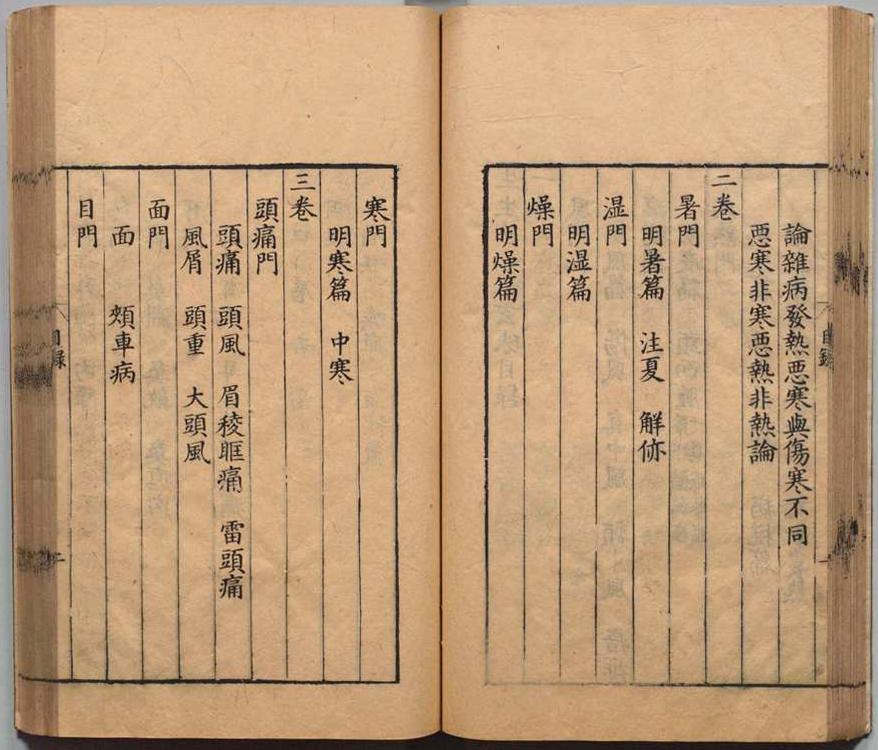 論雜病發熱惡寒與傷寒不同
惡寒非寒惡熱非熱論
二卷
暑門
明暑篇 注夏 解㑊
湿門
明湿篇
燥門
明燥篇
寒門
明寒篇 中寒
三卷
頭痛門
頭痛 頭風 眉稜眶痛 雷頭痛
風屑 頭重 大頭風
面門
面 頰車病
目門
目錄
目錄